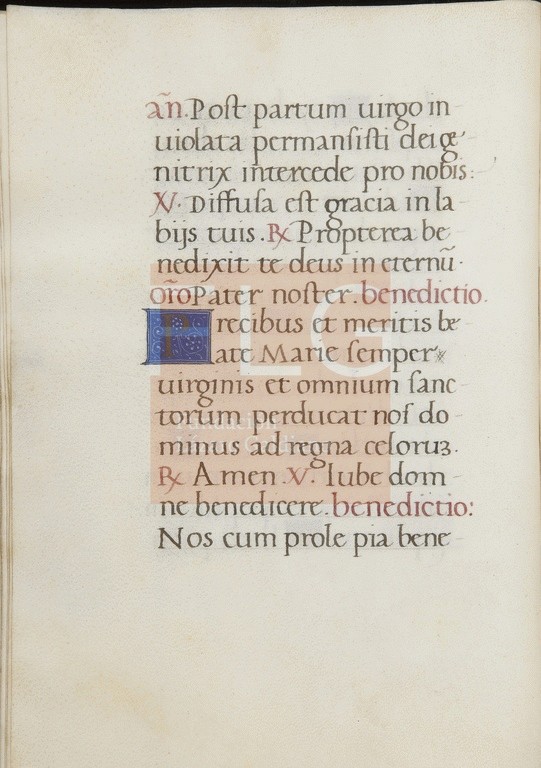 an̄. Post partum uirgo in
uiolata permansisti dei ge
nitrix intercede pro nobis:
V. Diffusa est gracia in la
bijs tuis. ℞ Propterea be
nedixit te deus in eternū.
or̄o Pater noster. benedictio.
Precibus et meritis be
ate Marie semper
uirginis et omnium sanc
torum perducat nos do
minus ad regna celoruꝫ.
℞ Amen. V. Iube dom
ne benedicere. benedictio:
Nos cum prole pia bene
FLG
Fundación